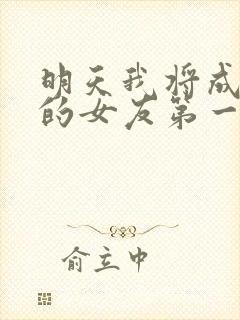 明天我将成
的女友第一
俞立中